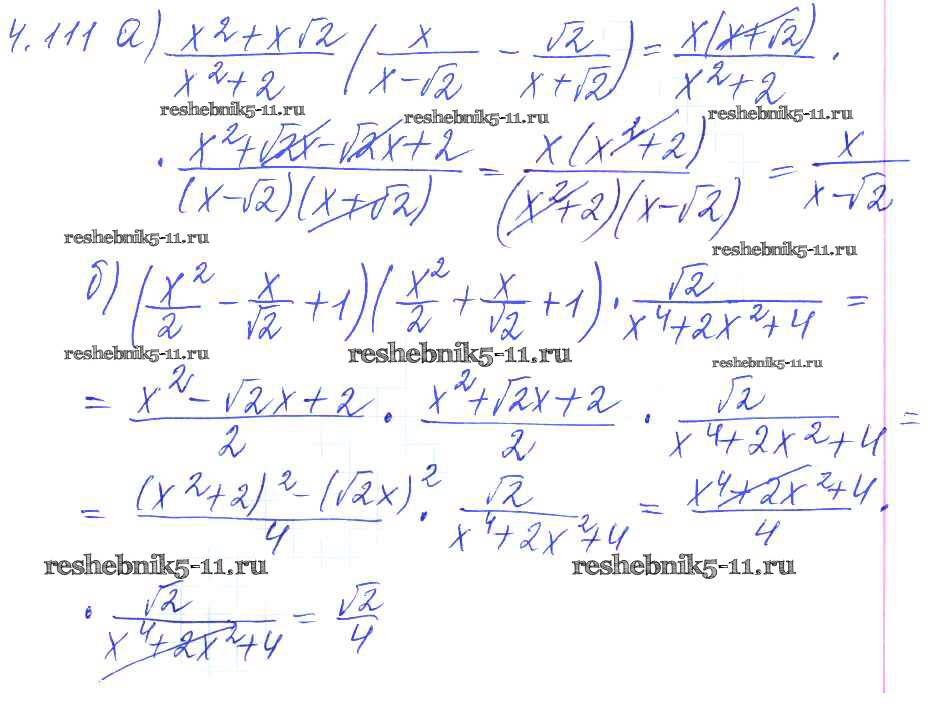 4.111 а) \frac{x^2+x\sqrt{2}}{x^2+2} \left(\frac{x}{x-\sqrt{2}} - \frac{\sqrt{2}}{x+\sqrt{2}}\right) = \frac{x(x+\sqrt{2})}{x^2+2} \cdot
reshebnik5-11.ru reshebnik5-11.ru reshebnik5-11.ru
\cdot \frac{x^2+\sqrt{2}x-\sqrt{2}x+2}{(x-\sqrt{2})(x+\sqrt{2})} = \frac{x(x^2+2)}{(x^2+2)(x-\sqrt{2})} = \frac{x}{x-\sqrt{2}}
reshebnik5-11.ru reshebnik5-11.ru
б) \left(\frac{x^2}{2} - \frac{x}{\sqrt{2}} + 1\right)\left(\frac{x^2}{2} + \frac{x}{\sqrt{2}} + 1\right) \cdot \frac{\sqrt{2}}{x^4+2x^2+4} =
reshebnik5-11.ru reshebnik5-11.ru reshebnik5-11.ru
= \frac{x^2-\sqrt{2}x+2}{2} \cdot \frac{x^2+\sqrt{2}x+2}{2} \cdot \frac{\sqrt{2}}{x^4+2x^2+4} =
= \frac{(x^2+2)^2-(\sqrt{2}x)^2}{4} \cdot \frac{\sqrt{2}}{x^4+2x^2+4} = \frac{x^4+2x^2+4}{4} \cdot
reshebnik5-11.ru reshebnik5-11.ru
\cdot \frac{\sqrt{2}}{x^4+2x^2+4} = \frac{\sqrt{2}}{4}